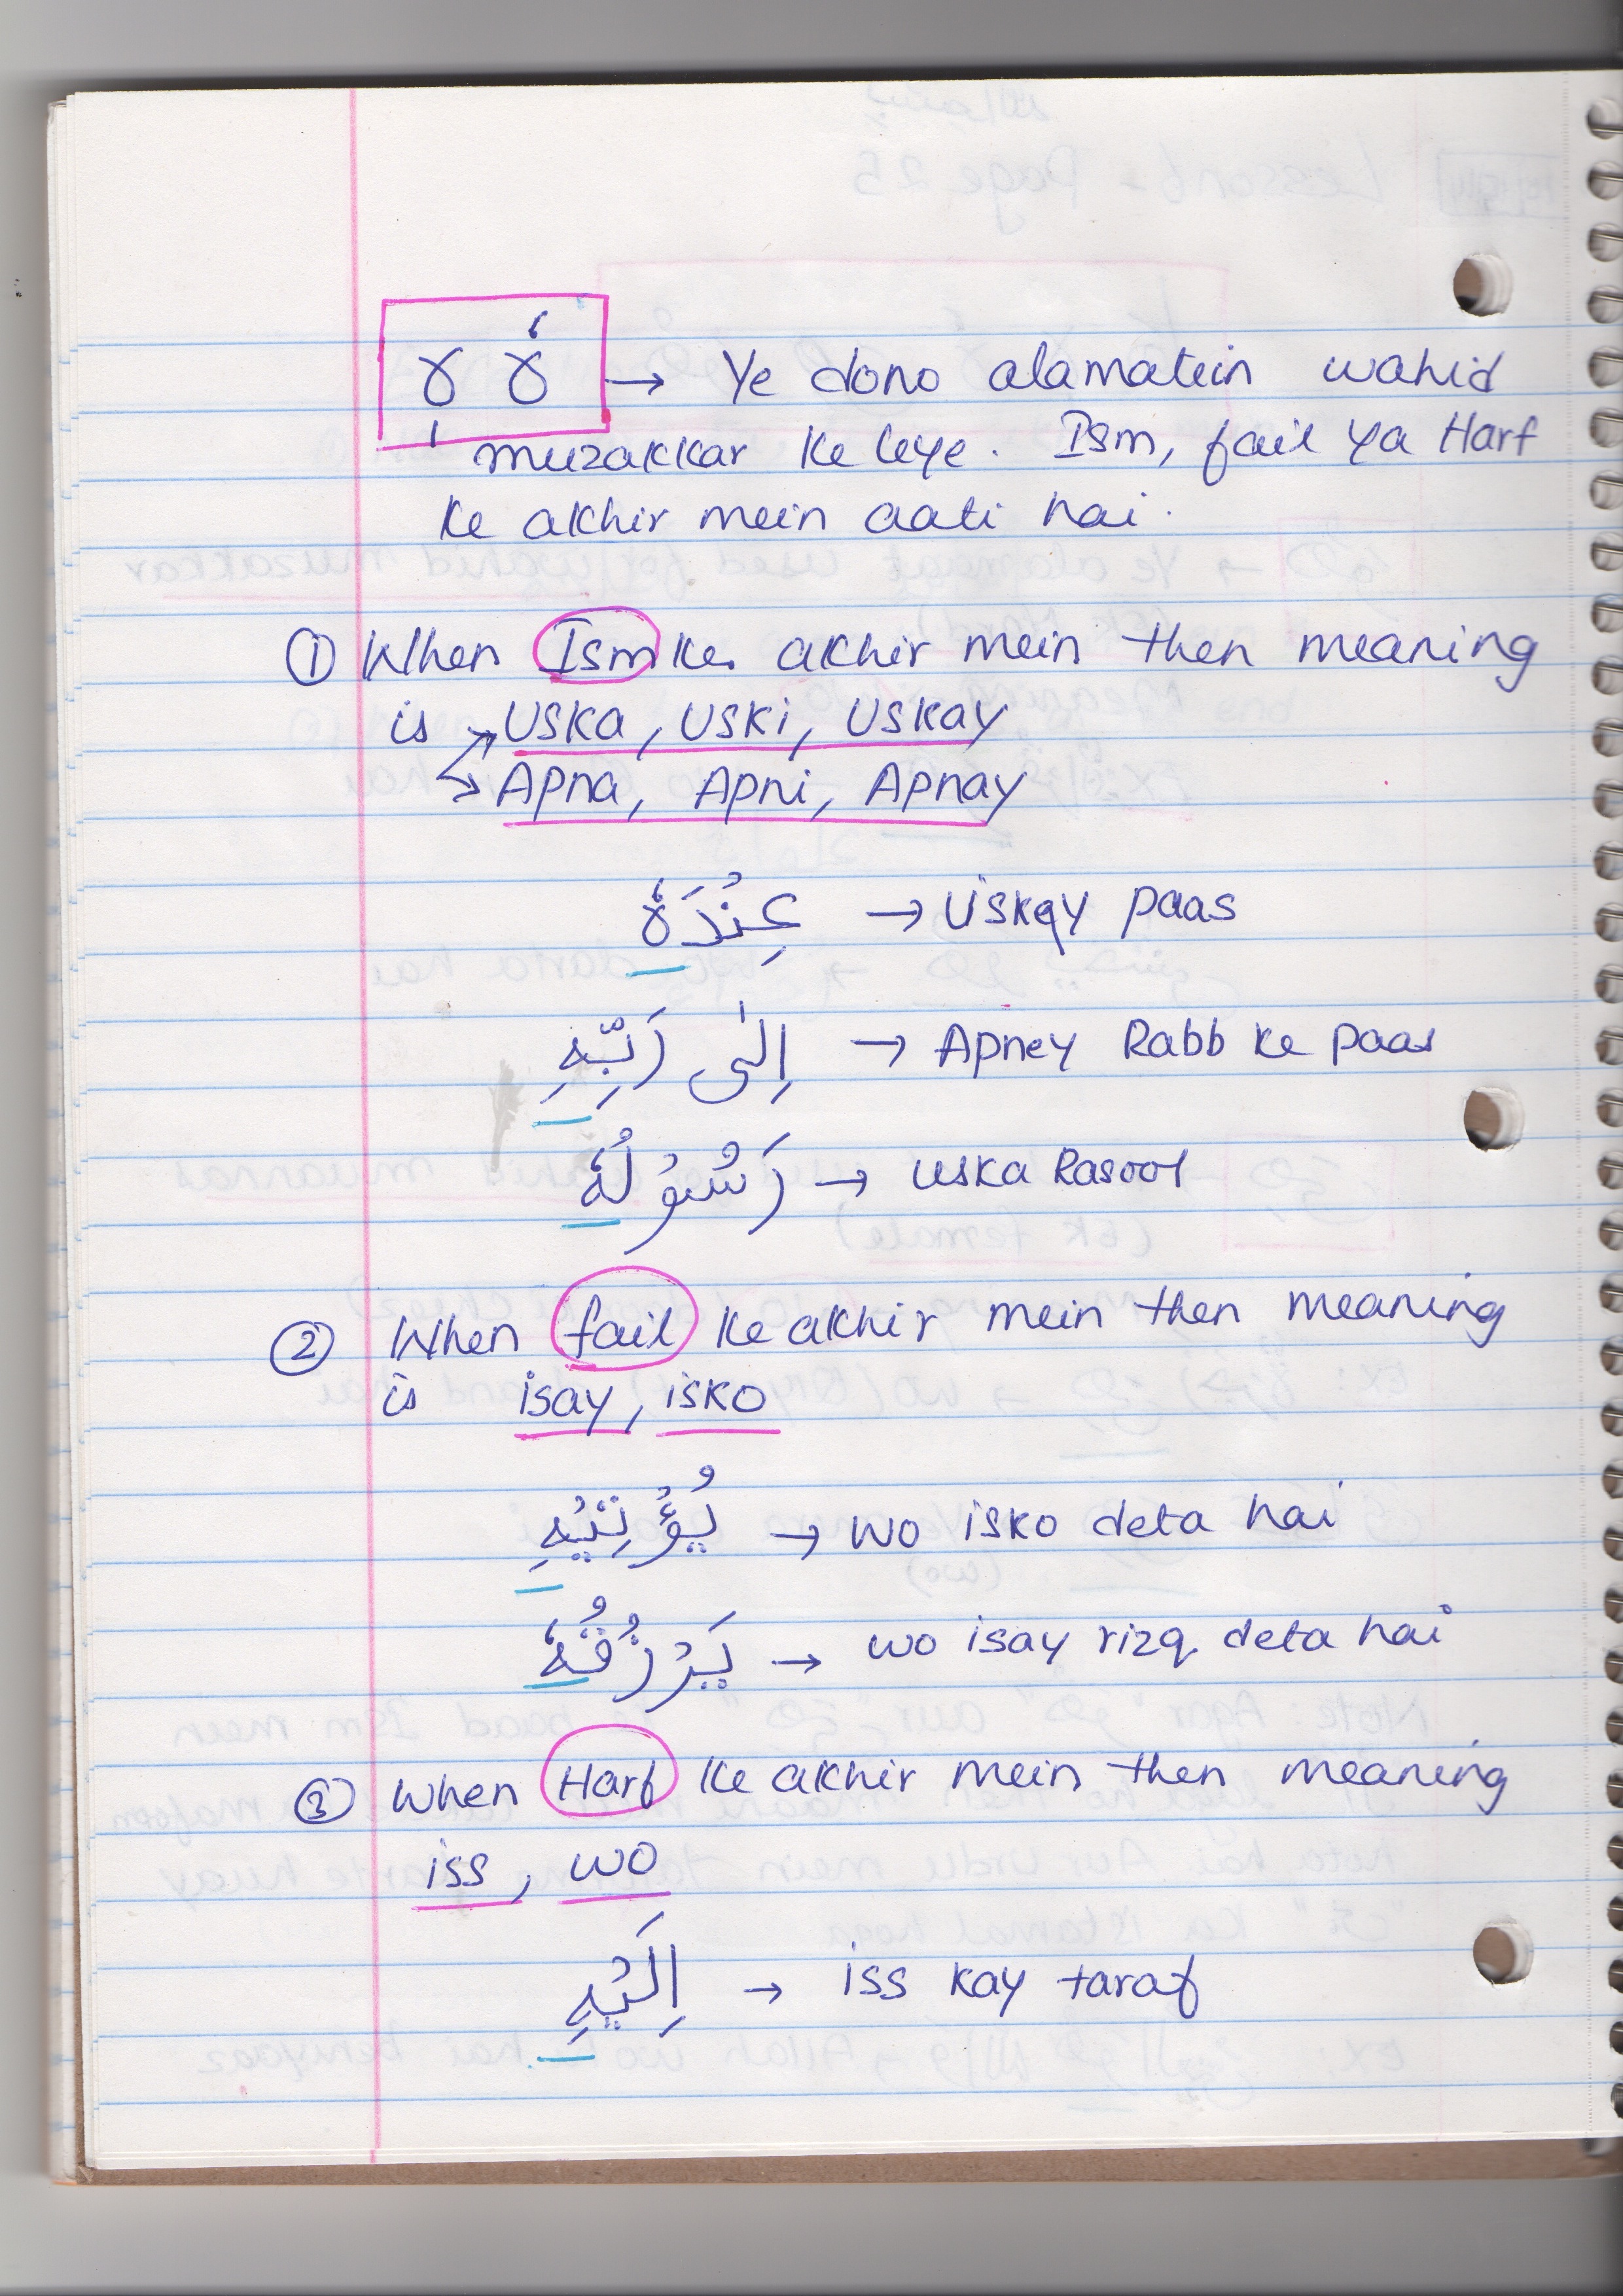 هٖ هٗ → Ye dono alamatein wahid
muzakkar ke leye. Ism, fail ya Harf
ke akhir mein aati hai.
① When Ism ke akhir mein then meaning
is → Uska, Uski, Uskay
→ Apna, Apni, Apnay
عِنْدَهٗ → Uskay paas
اِلٰى رَبِّهِ → Apney Rabb ke paas
رَسُوْلُهٗ → Uska Rasool
② When fail ke akhir mein then meaning
is isay, isko
يُؤْتِيْهِ → wo isko deta hai
يَرْزُقُهٗ → wo isay rizq deta hai
③ When Harf ke akhir mein then meaning
iss, wo
اِلَيْهِ → iss kay taraf